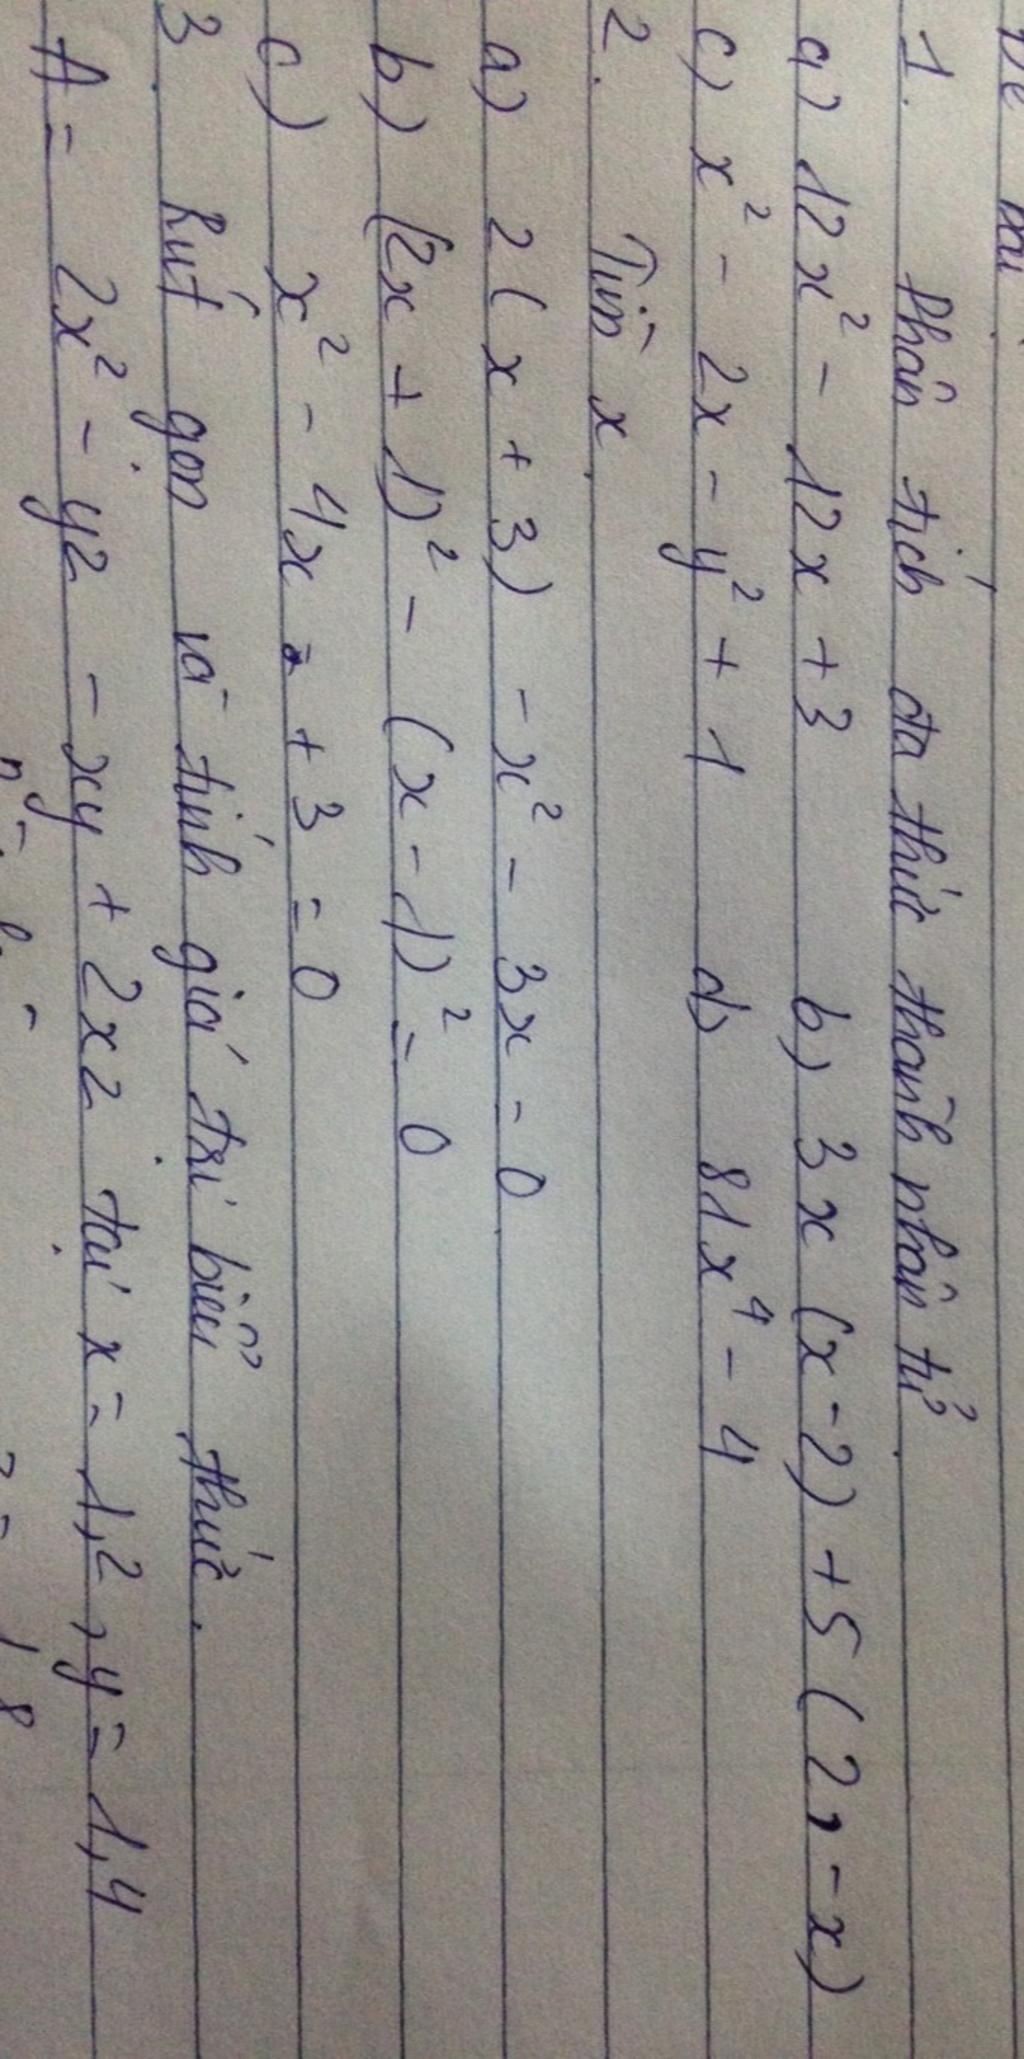 1. Phân tích đa thức thành nhân tử
a) 12x² - 12x + 3 b) 3x (x - 2) + 5 (2 - x)
c) x² - 2x - y² + 1 d) 81x⁴ - 4
2. Tìm x
a) 2 (x + 3) - x² - 3x = 0
b) (2x + 1)² - (x - 1)² = 0
c) x² - 4x + 3 = 0
3. Rút gọn và tính giá trị biểu thức.
A = 2x² - yz - xy + 2xz tại x = 1,2, y = 1,4